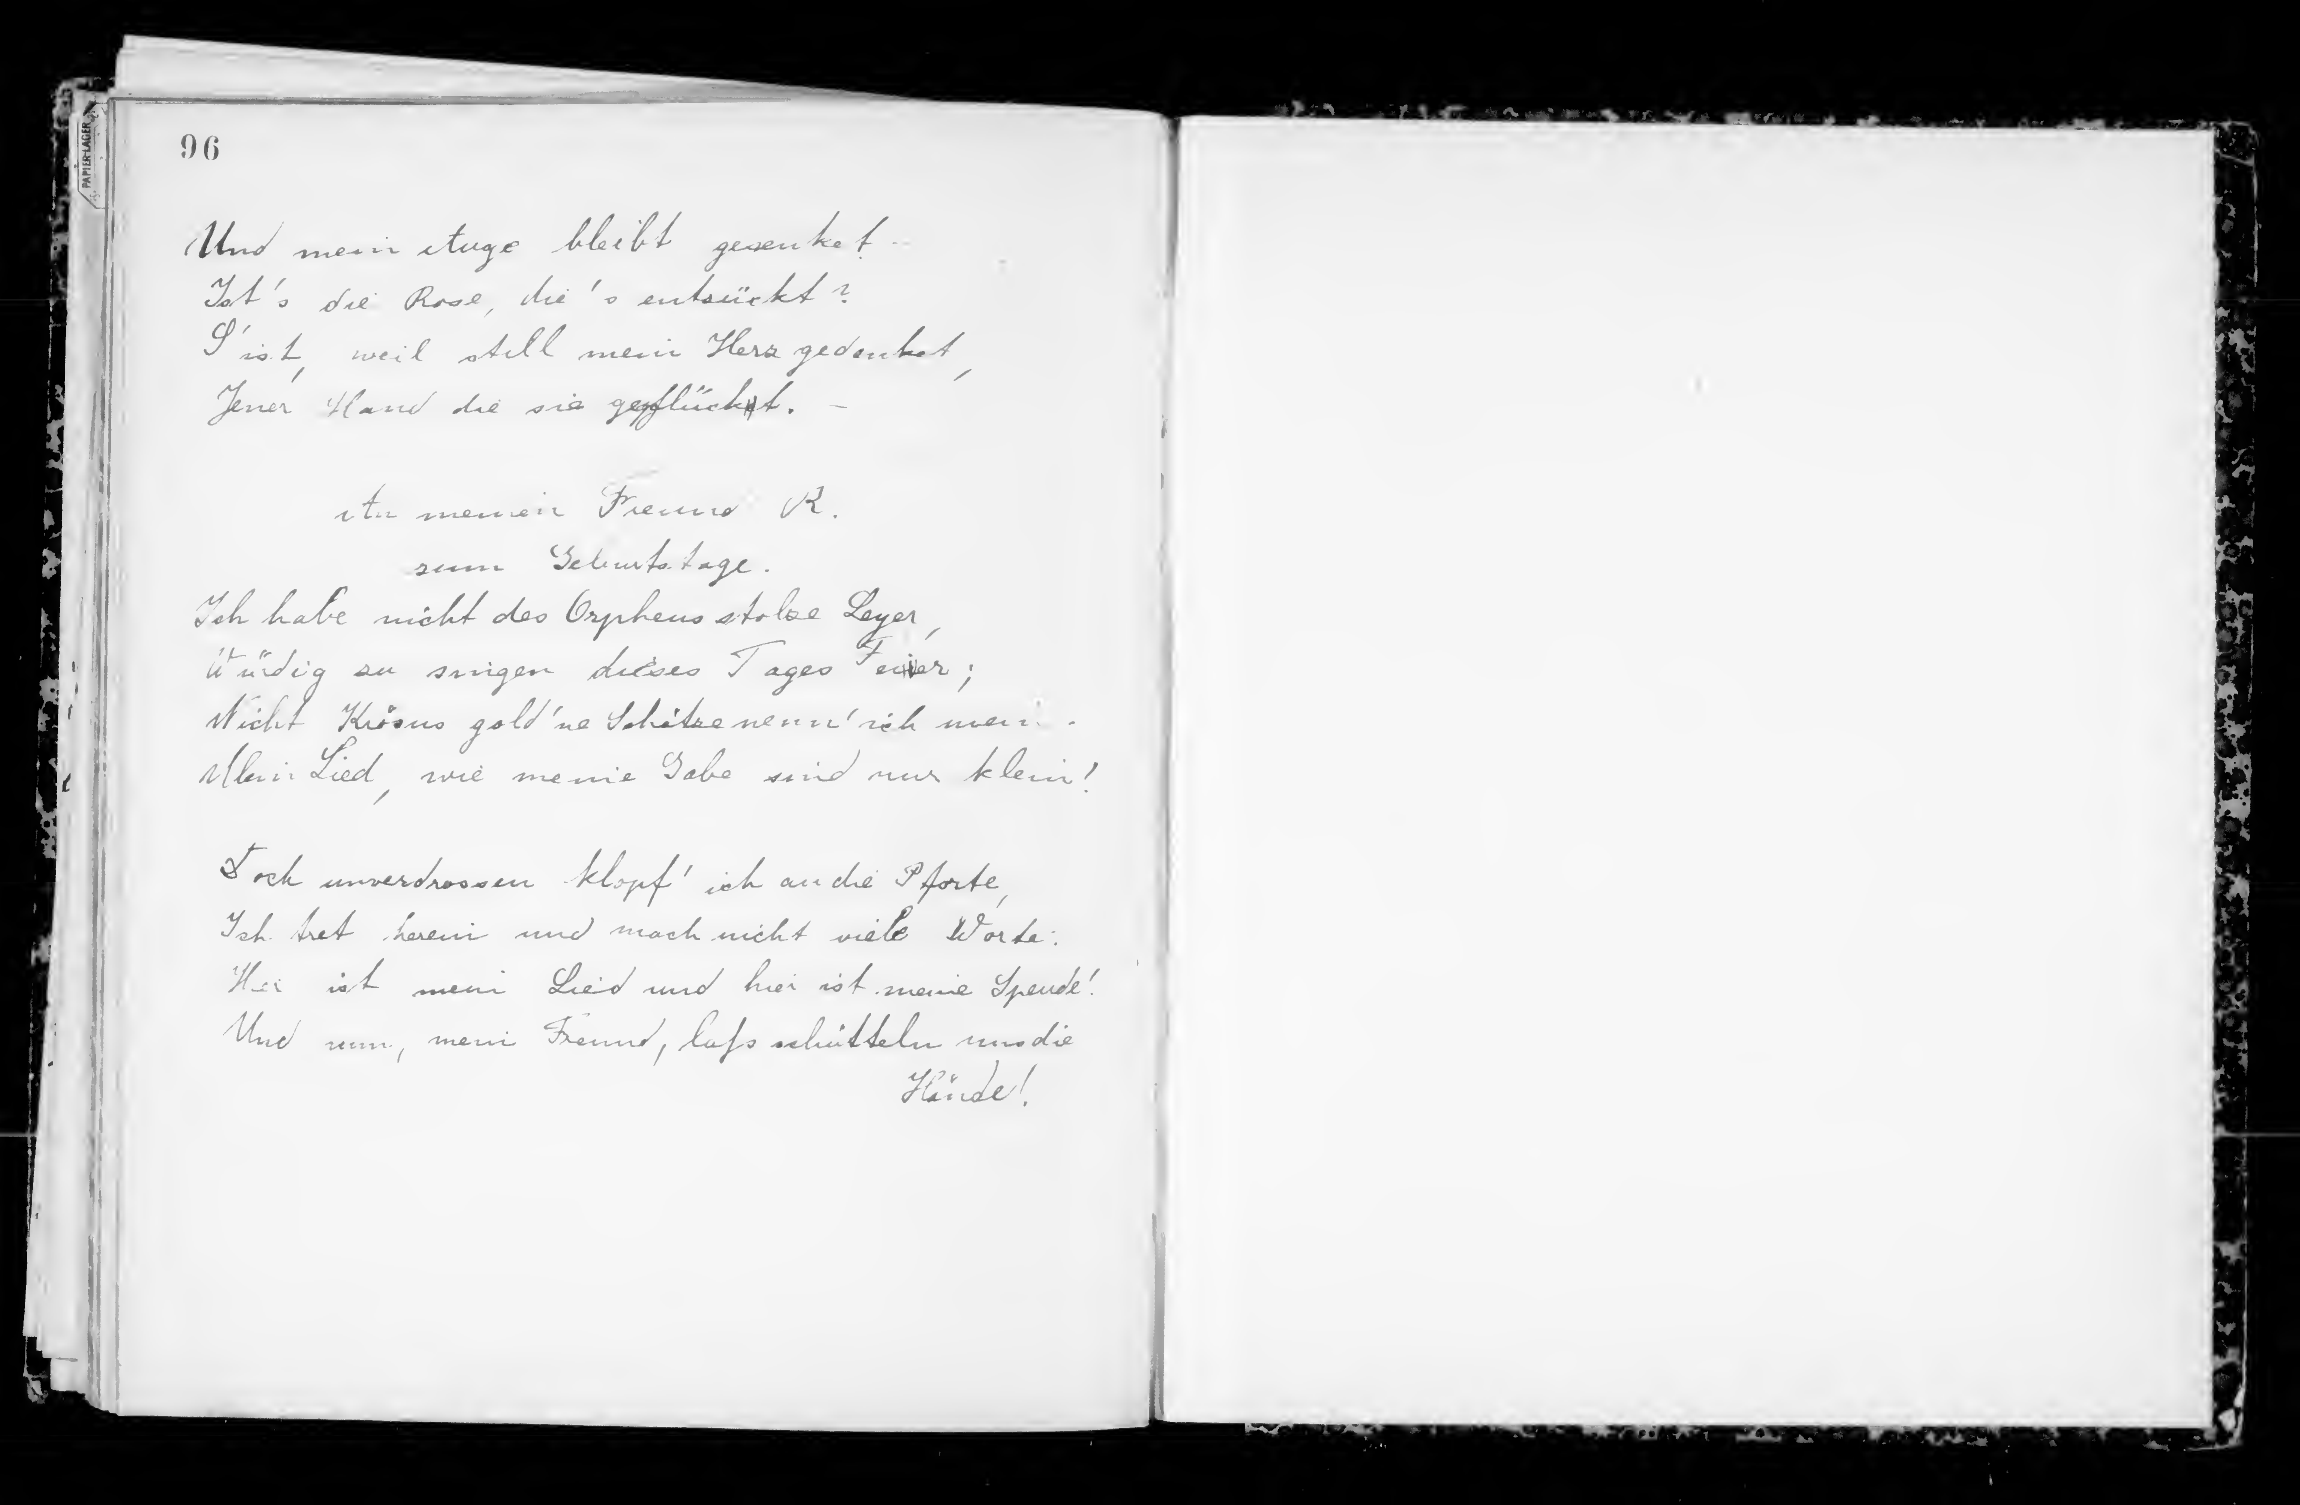 PAPIER-LAGER
96
Und mein Auge bleibt gesenket –
Ist's die Rose, die's entzückt?
S'ist, weil still mein Herz gedenket,
Jener Hand die sie gepflückt. –
An meinen Freund R.
zum Geburtstage.
Ich habe nicht des Orpheus stolze Leyer,
Würdig zu singen dieses Tages Feier;
Nicht Krösus gold'ne Schätze nenn' ich mein.
Mein Lied, wie meine Gabe sind nur klein!
Doch unverdrossen klopf' ich an die Pforte,
Ich tret herein und mach nicht viele Worte:
Hier ist mein Lied und hier ist meine Spende!
Und nun, mein Freund, lass schütteln uns die
Hände!